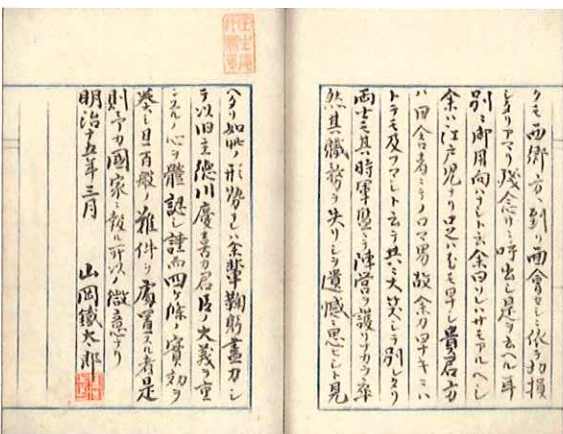 クモ西郷方ヘ到リ面會セシニ依テ切損
シタリアマリ残念ナリト呼出シ是ヲ云ヘル耳
別ニ御用向ハナシト云余曰ソレハサモアルヘシ
余ハ江戸児ナリ足ハ尤モ早シ貴君方
ハ田舎者ニテノロマ男故余カ早キニハ
トテモ及フマシト云テ共ニ大笑シテ別レタリ
両士モ其時軍監ニテ陣営ヲ護リナカラ卒
然其職務ヲ失シヲ遺憾ニ思ヒシト見
ヘタリ如此ノ形勢ナレハ余輩鞠躬盡力シ
テ以旧主徳川慶喜カ君臣ノ大義ヲ重
ンスルノ心ヲ體認シ謹而四ケ條ノ實効ヲ
奏シ且百般ノ難件ヲ處置スル者是
則予カ國家ニ報ル所以ノ微意ナリ
明治十五年三月　山岡鐵太郎